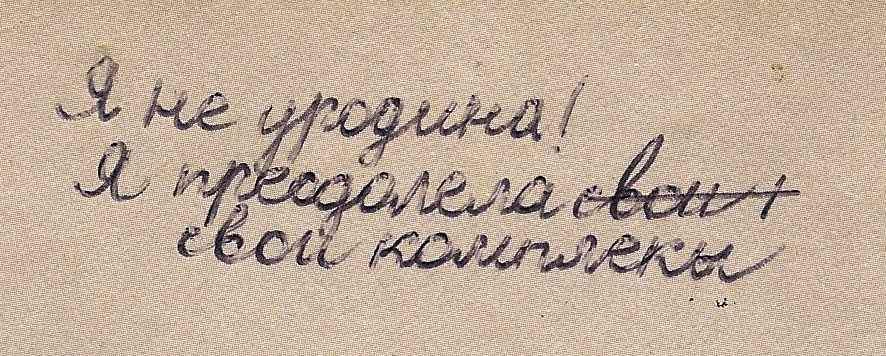 Я не уродина!
Я преодолела свои
свои комплекы